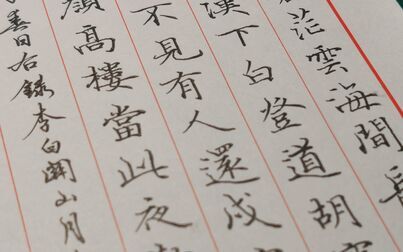 茫雲海間長
漢下白登道胡
不見有人還戍
顏高樓當此夜
日右錄李白關山月